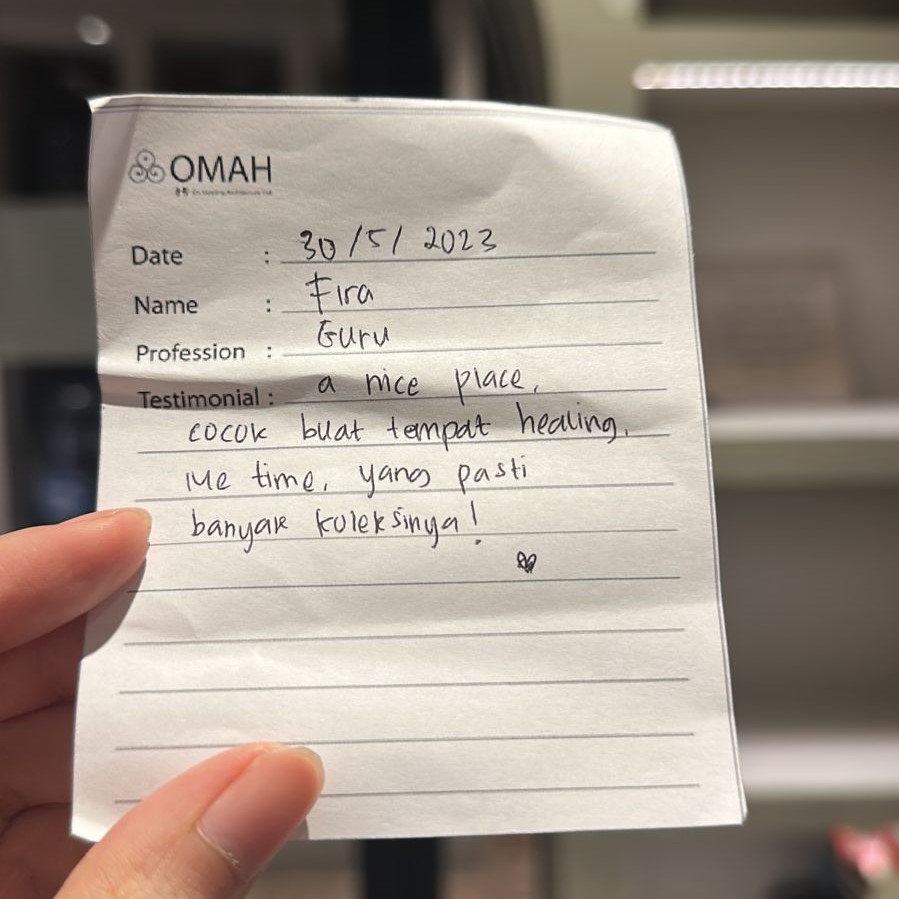 OMAH
Date : 30/5/2023
Name : Fira
Profession : Guru
Testimonial : a nice place,
cocok buat tempat healing,
me time, yang pasti
banyak koleksinya!